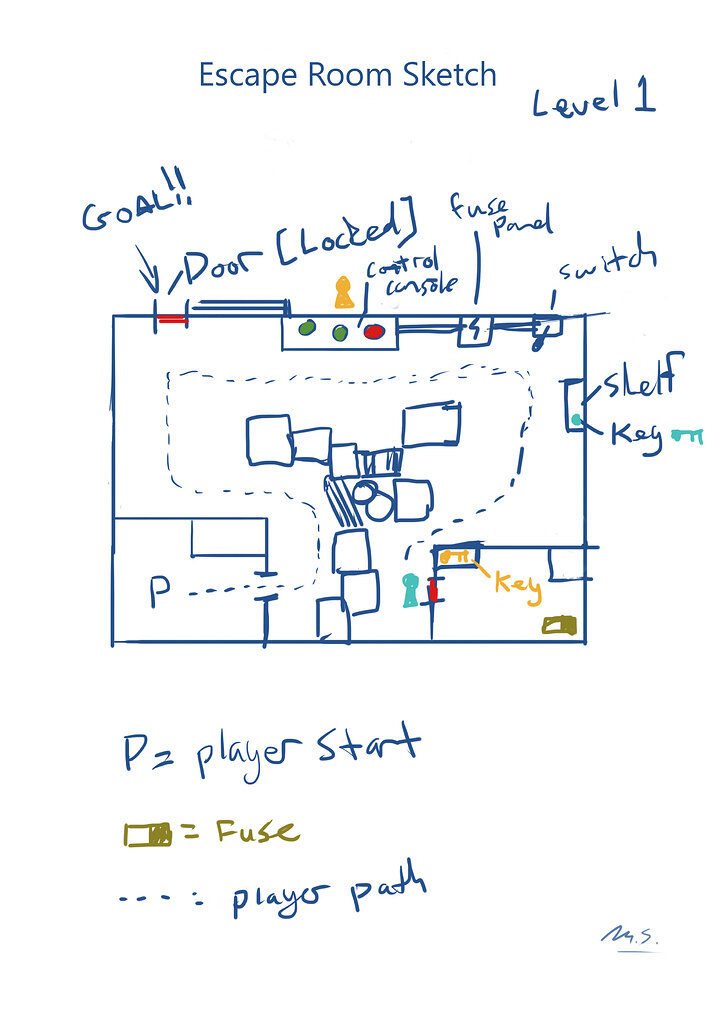 Escape Room Sketch
Level 1
GOAL!!
Door [Locked]
fuse
panel
control
console
switch
Shelf
Key
Key
P
P = player Start
= Fuse
---- : player path
M.S.